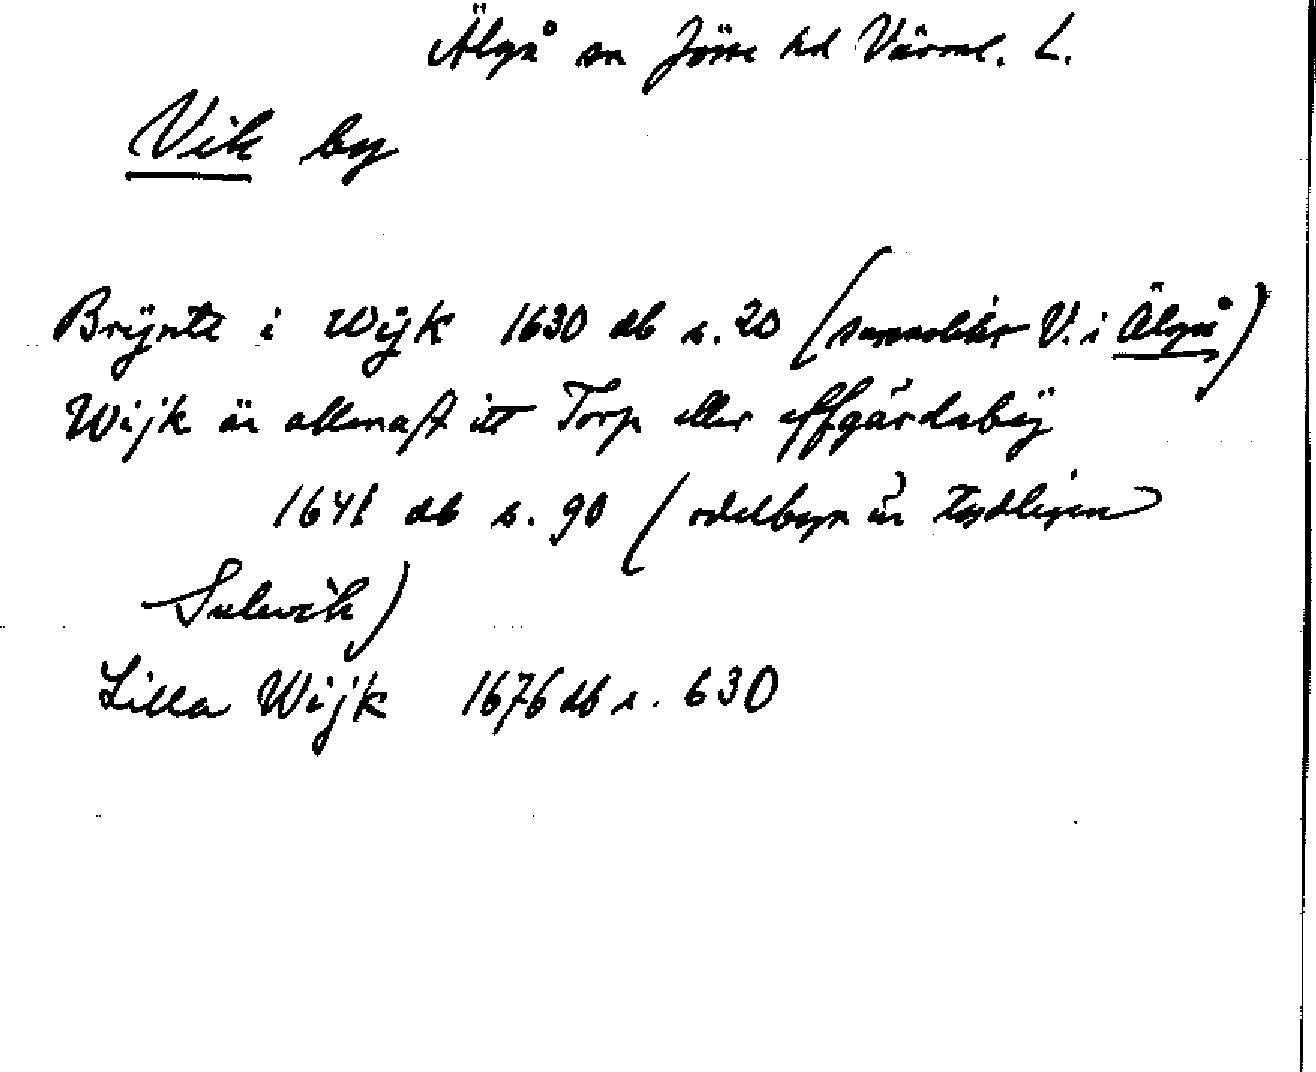 Älgå sn Jösse hd Värml. L.
Vik by
Brÿnte i Wijk 1630 db s. 20 (sannolikt V. i Älgå)
Wijk är allenast itt Torp eller affgärdabÿ
1641 db s. 90 (odelbyn är tydligen
Sulvik)
Lilla Wijk 1676 db s. 630